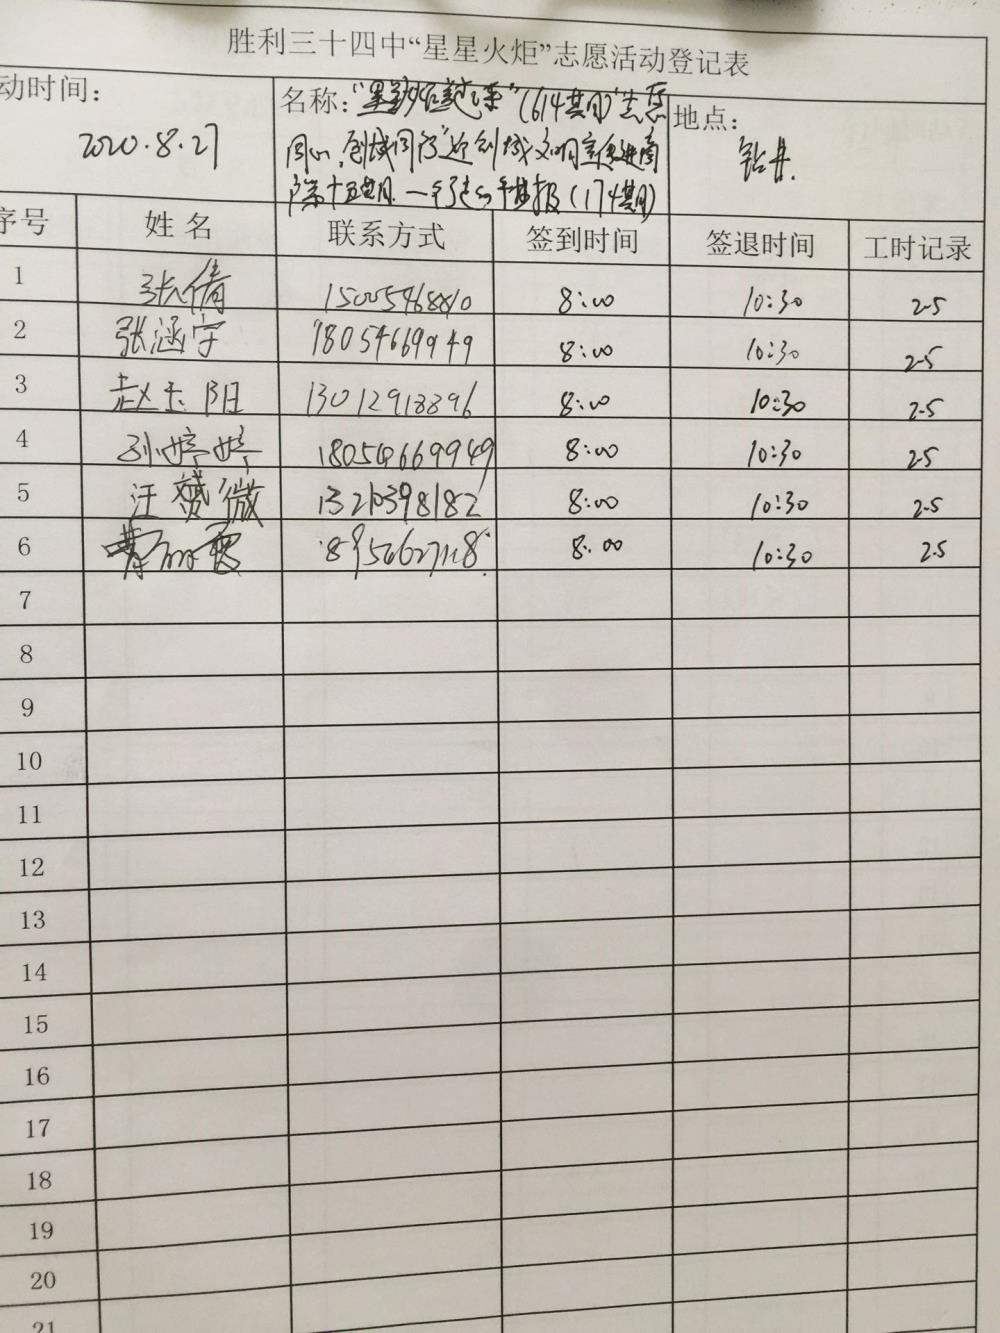 胜利三十四中“星星火炬”志愿活动登记表
动时间：
2020.8.27
名称：(614期)志愿
同心,创城同行
(174期)
地点：
序号 姓名 联系方式 签到时间 签退时间 工时记录
1 张倩 15005468810 8:00 10:30 2.5
2 张涵宇 18054669949 8:00 10:30 2.5
3 赵玉阳 13012918896 8:00 10:30 2.5
4 孙婷婷 18054669949 8:00 10:30 2.5
5 汪 微 13210398182 8:00 10:30 2.5
6 8:00 10:30 2.5
7
8
9
10
11
12
13
14
15
16
17
18
19
20
21